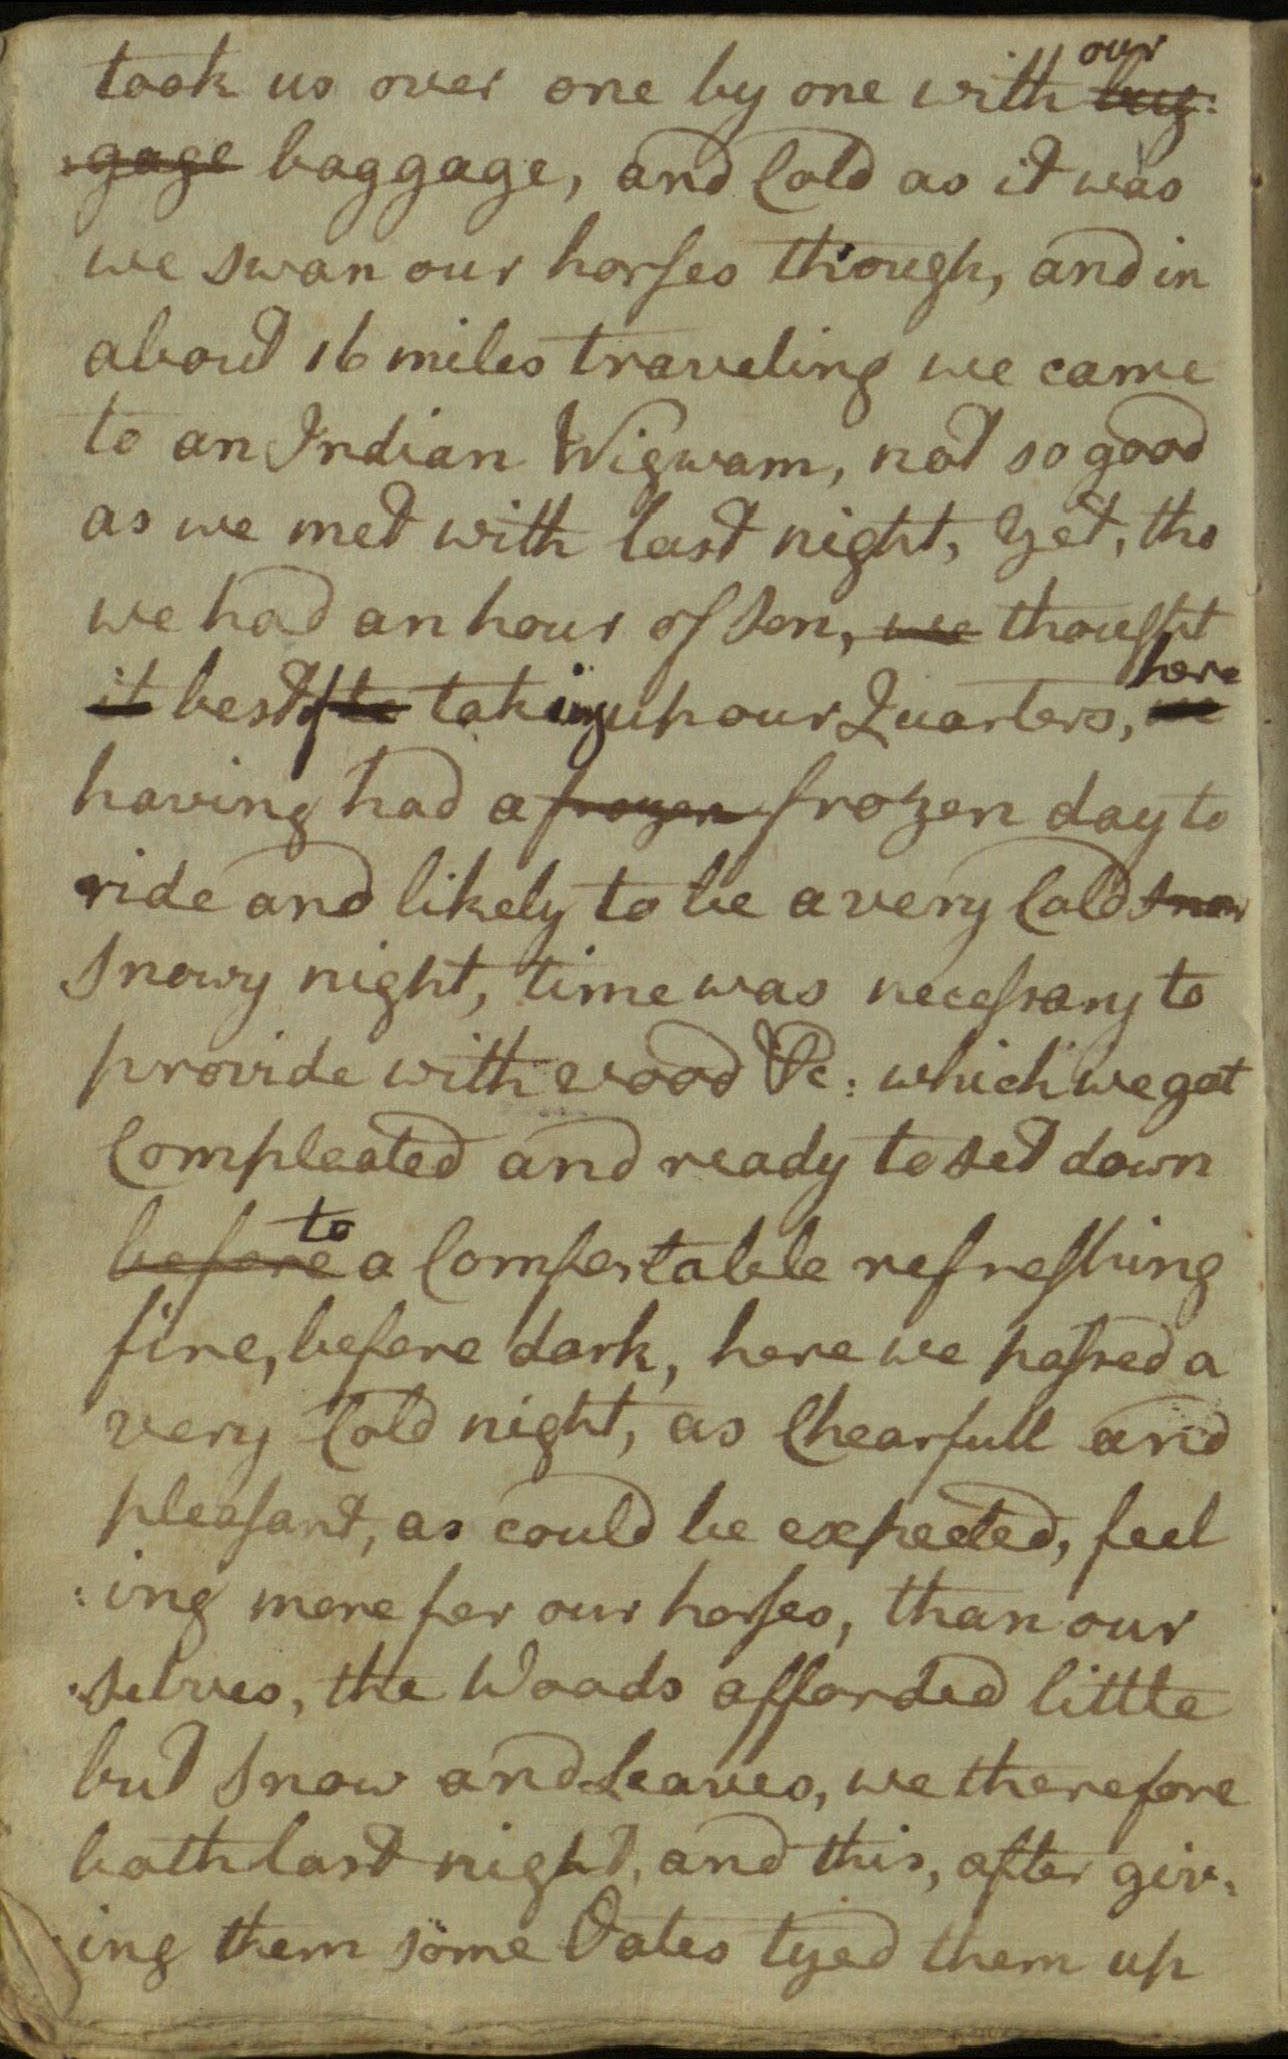 took us over one by one with our bag:
:gage baggage, and Cold as it was
we swan our horses through, and in
about 16 miles traveling we came
to an Indian Wigwam, not so good
as we met with last night, Yet, tho
we had an hour of Son, we thought
it best to taking up our Quarters, here
having had a frozen frozen day to
ride and likely to be a very Cold Snow
Snowy night, time was necessary to
provide with wood &c: which we got
Compleated and ready to set down
before to a Comfortable refreshing
fire, before dark, here we passed a
very Cold night, as Chearfull and
pleasant, as could be expected, feel
:ing more for our horses, than our
:selves, the Woods afforded little
but Snow and Leaves, we therefore
both last night, and this, after giv:
:ing them some Oates tyed them up